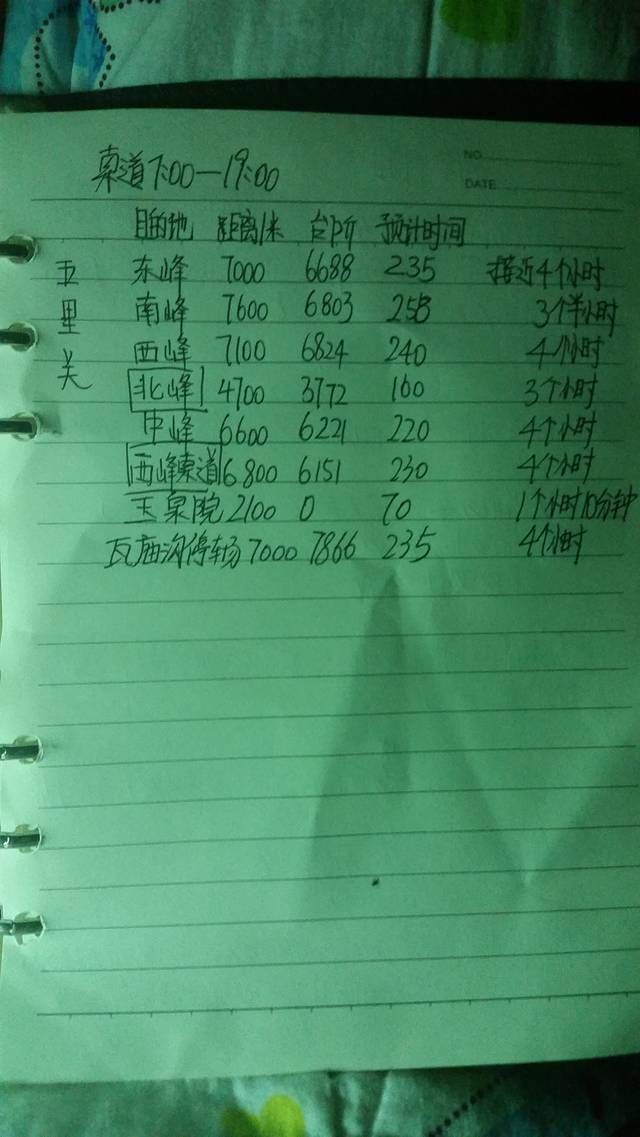 NO.
DATE
索道7:00—19:00
目的地 距离/米 台阶 预计时间
五里关
东峰 7000 6688 235 接近4个小时
南峰 7600 6803 258 3个半小时
西峰 7100 6824 240 4个小时
北峰 4700 3772 160 3个小时
中峰 6600 6221 220 4个小时
西峰索道 6800 6151 230 4个小时
玉泉院 2100 0 70 1个小时10分钟
瓦庙沟停车场 7000 7866 235 4个小时